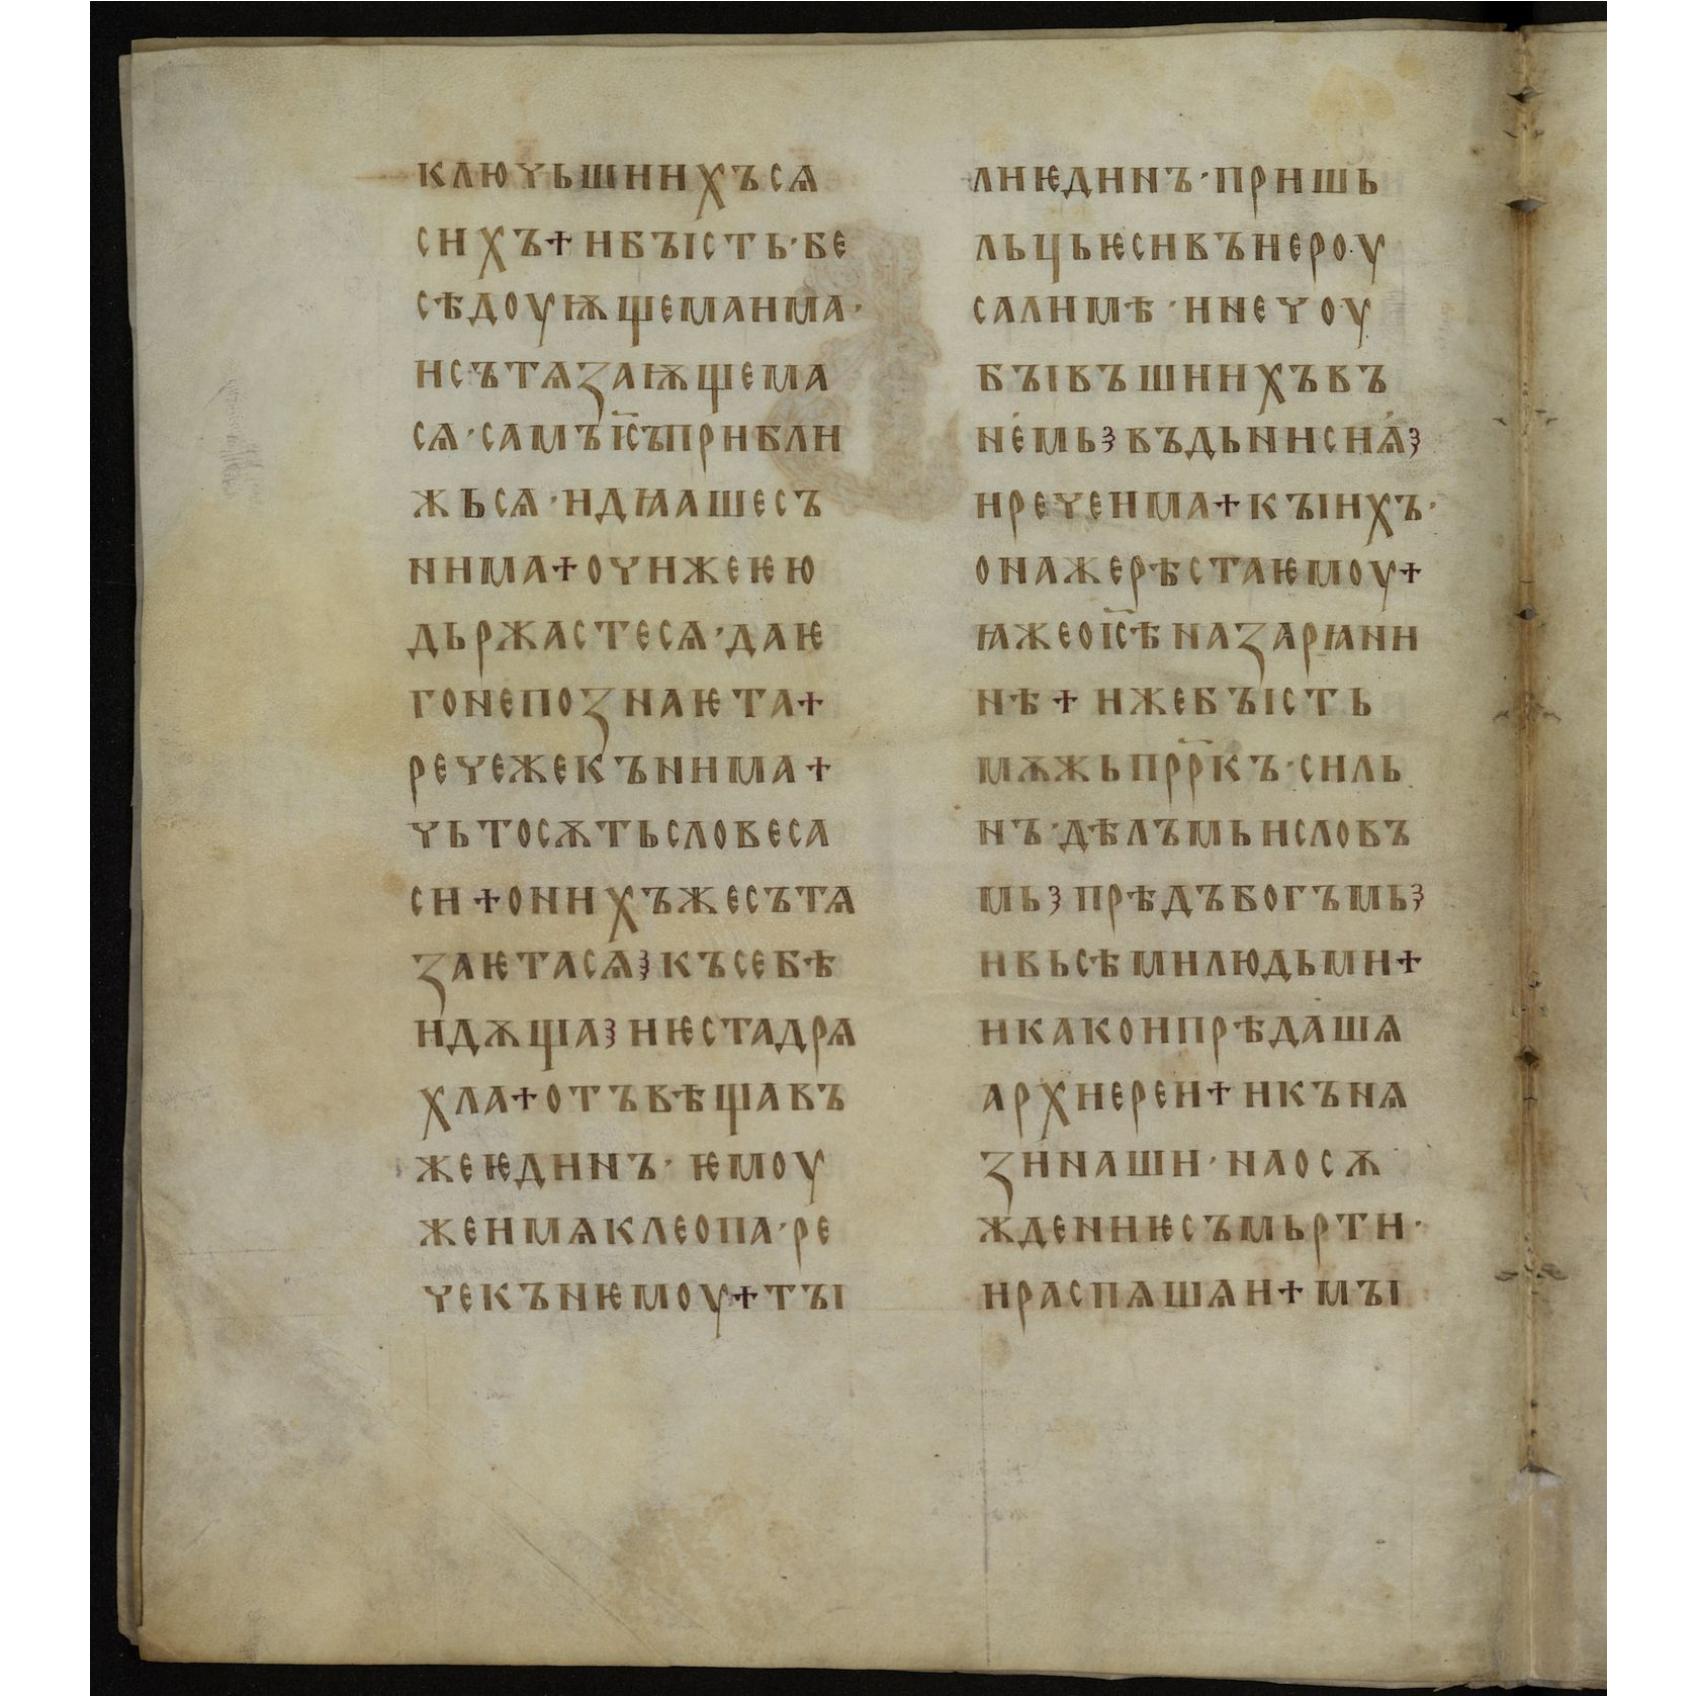 КЛЮЧЬШИИХЪСѦ
СИХЪ+ИБЪІСТЬ·БЕ
СѢДОУѬЩЕМАИМА·
ИСЪТѦЗАѬЩЕМА
СѦ·САМЪІС҃ЪПРИБЛИ
ЖЬСѦ·ИДꙖАШЕСЪ
НИМА+ОЧИЖЕѤЮ
ДЬРЖАСТЕСѦ·ДАѤ
ГОНЕПОЗНАѤТА+
РЕЧЕЖЕКЪНИМА+
ЧЬТОСѪТЬСЛОВЕСА
СИ+ОНИХЪЖЕСЪТѦ
ЗАѤТАСѦ꙳КЪСЕБѢ
ИДѪЩА꙳ИѤСТАДРѦ
ХЛА+ОТЪВѢЩАВЪ
ЖЕѤДИНЪ·ѤМОУ
ЖЕИМѦКЛЕОПА·РЕ
ЧЕКЪНѤМОУ+ТЪІ
ЛИѤДИНЪ·ПРИШЬ
ЛЬЦЬѤСИВЪИЕРОУ
САЛИМѢ·ИНЕЧОУ
БЪІВЪШИИХЪВЪ
НЕМЬ꙳ВЪДЬНИСИѦ꙳
ИРЕЧЕИМА+КЪІИХЪ·
ОНАЖЕРѢСТАѤМОУ+
ꙖЖЕОІС҃ѢНАЗАРꙖНИ
НѢ+ИЖЕБЪІСТЬ
МѪЖЬПРР҃КЪ·СИЛЬ
НЪ·ДѢЛЪМЬИСЛОВЪ
МЬ꙳ПРѢДЪБОГЪМЬ꙳
ИВЬСѢМИЛЮДЬМИ+
ИКАКОИПРѢДАШѦ
АРХИЕРЕИ+ИКЪНѦ
ЗИНАШИ·НАОСѪ
ЖДЕНИѤСЪМЬРТИ·
ИРАСПѦШѦИ+МЪІ